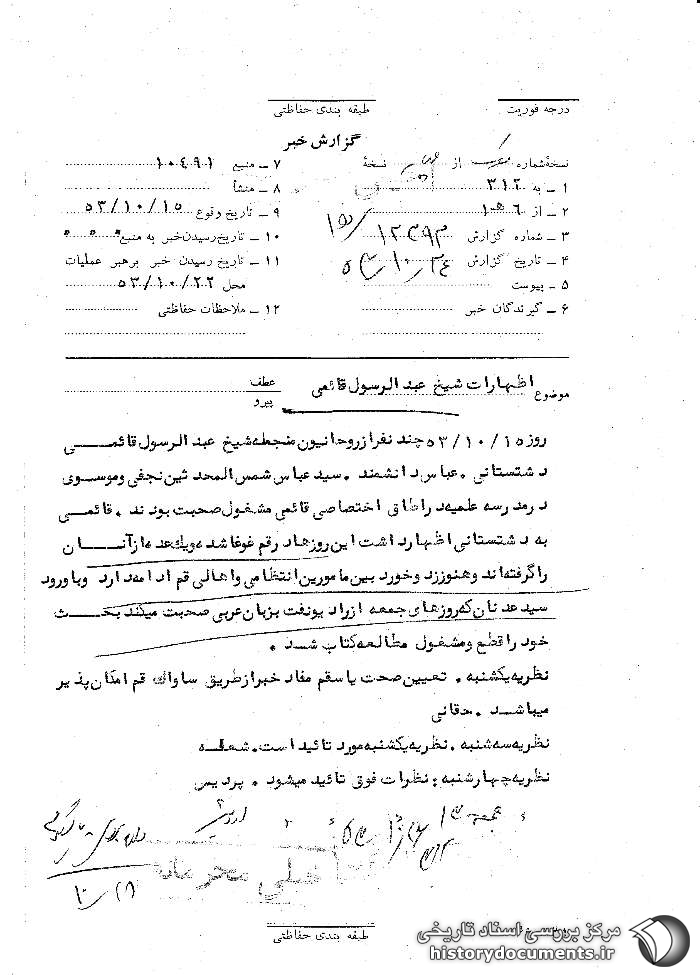 درجه فوریت
طبقه بندی حفاظتی
گزارش خبر
نسخهٔ شماره از نسخهٔ
۱ ـ به ۳۱۲
۲ ـ از ۶ ﻫ ۱
۳ ـ شماره گزارش ۱۲۳۹۳
۴ ـ تاریخ گزارش
۵ ـ پیوست
۶ ـ گیرندگان خبر
۷ ـ منبع ۱۰۴۹۱
۸ ـ منشأ
۹ ـ تاریخ وقوع ۵۳/۱۰/۱۵
۱۰ ـ تاریخ رسیدن خبر به منبع
۱۱ ـ تاریخ رسیدن خبر برهبر عملیات
محل ۵۳/۱۰/۲۲
۱۲ ـ ملاحظات حفاظتی
موضوع اظهارات شیخ عبدالرسول قائمی
عطف
پیرو
روز ۵۳/۱۰/۱۵ چند نفر از روحانیون منجمله شیخ عبدالرسول قائمی
دشتستانی ۰ عباس دانشمند ۰ سید عباس شمس المحدثین نجفی وموسوی
درمدرسه علمیه دراطاق اختصاصی قائمی مشغول صحبت بودند ۰ قائمی
به دشتستانی اظهارداشت این روزها درقم غوغا شده ویکعده ازآنان
را گرفته‌اند وهنوززد وخورد بین مامورین انتظامی واهالی قم ادامه دارد وباورود
سید عدنان که روزهای جمعه ازرادیو نفت بزبان عربی صحبت میکند بحث
خود را قطع ومشغول مطالعه کتاب شد ۰
نظریه یکشنبه ۰ تعیین صحت یاسقم مفاد خبرازطریق ساواک قم امکان پذیر
میباشد ۰ حقانی
نظریه سه شنبه ۰ نظریه یکشنبه مورد تائید است. شعله
نظریه چهارشنبه : نظرات فوق تائید میشود ۰ پردیس
خیلی محرمانه
طبقه بندی حفاظتی
مرکز بررسی اسناد تاریخی
historydocuments.ir